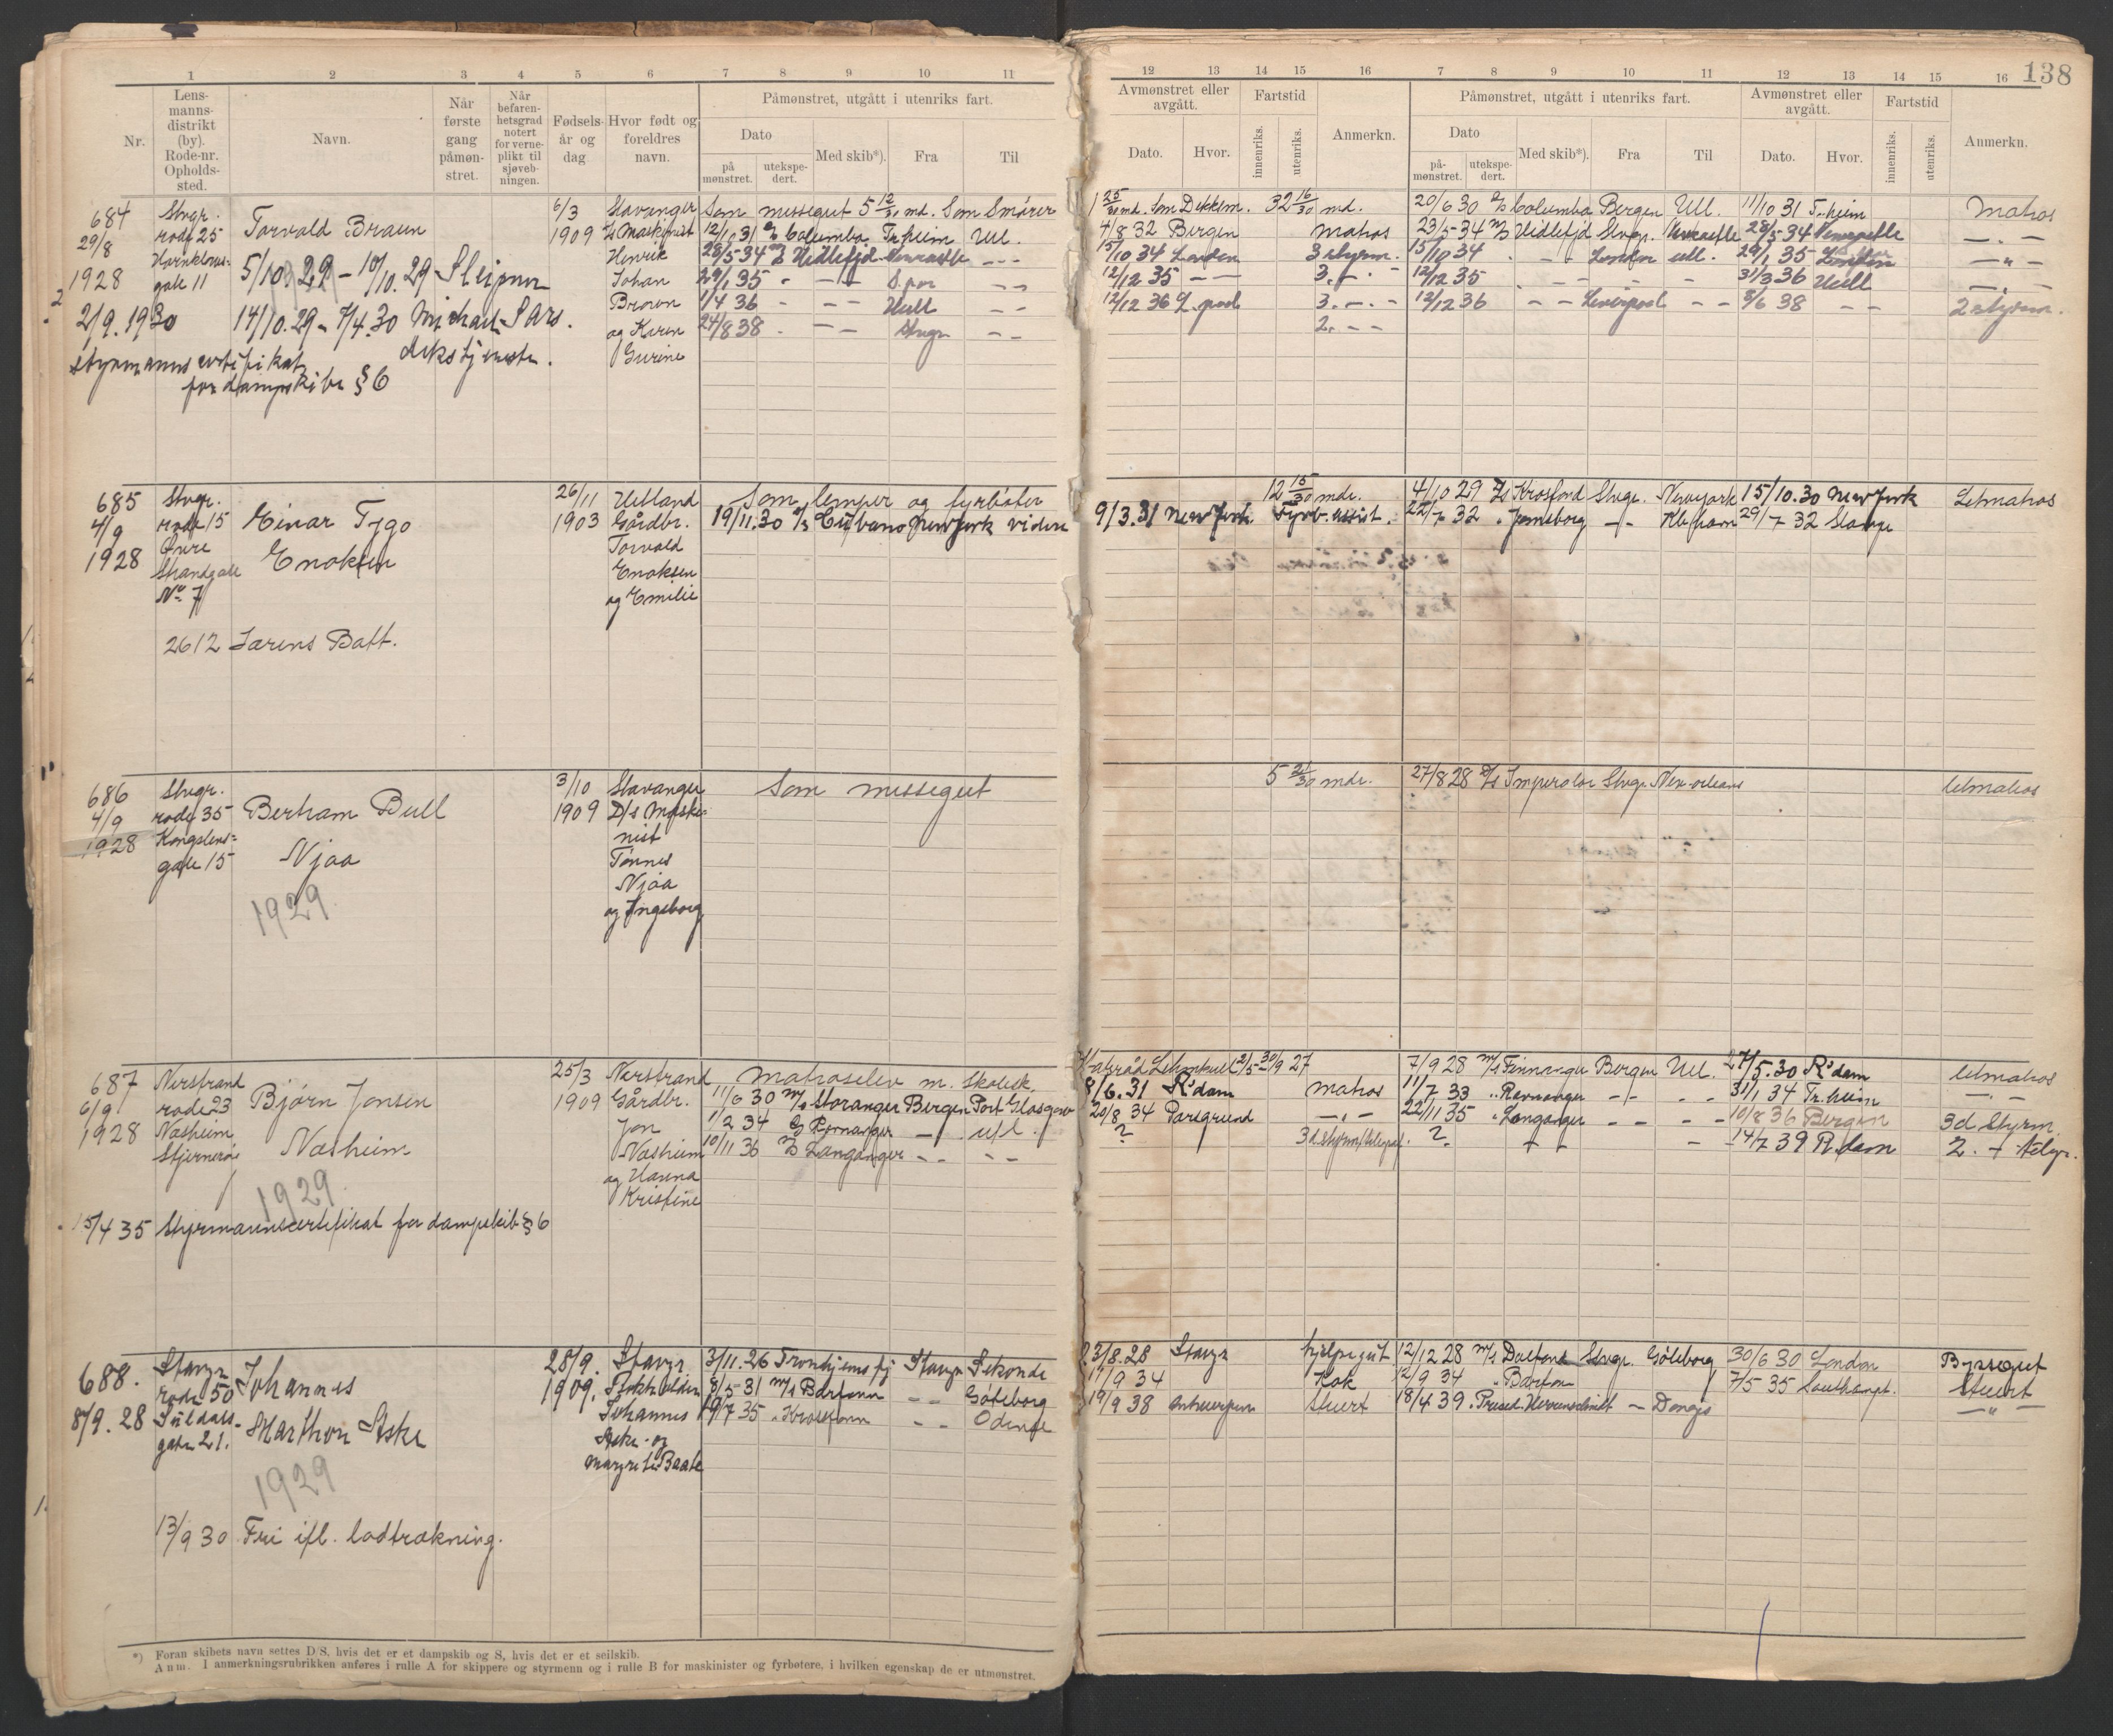 138
1 2 3 4 5 6 7 8 9 10 11
12 13 14 15 16 7 8 9 10 11 12 13 14 15 16
Nr.
Lens-
manns-
distrikt
(by).
Rode-nr.
Opholds-
sted.
Navn.
Når
første
gang
påmøn-
stret.
Når
befaren-
hetsgrad
notert
for verne-
plikt til
sjøveb-
ningen.
Fødsels-
år og
dag
Hvor født og
foreldres
navn.
Påmønstret, utgått i utenriks fart.
Dato
på
mønstret.
utekspe-
dert.
Med skib*).
Fra
Til
Avmønstret eller
avgått.
Dato.
Hvor.
Fartstid
innenriks.
utenriks.
Anmerkn.
Påmønstret, utgått i utenriks fart.
Dato
på-
mønstret.
utekspe-
dert.
Med skib*).
Fra
Til
Avmønstret eller
avgått.
Dato.
Hvor.
Fartstid
innenriks.
utenriks.
Anmerkn.
684
29/8
1928
Stvgr.
rode 25
gate 11
Torvald Braun
5/10 29 – 10/10. 29 – Sleipner
2/9. 1930
14/10. 29 – 7/4. 30 Michael Sars.
dekstjeneste.
styrmannscertifikat
for dampskibe § 6
6/3
1909
Stavanger
D/s Maskinist
Henrik
Johan
Braun
og Karen
Gurine
Som messegut 5 12/30 md. Som Smører
12/10 31 D/s Columba Tr.heim Utl.
28/5 34 M/s Hidlefjd Newcastle – –
29/1 35 – – – – –
1/4 36 – – – Hull – –
24/8 38 – – – Stvgr – –
1 25/30 md. Som Dekksm. 32 16/30 md.
4/8 32 Bergen matros
15/10 34 London 3 styrm.
12/12 35 – – 3. – . –
12/12 36 L.pool 3. – . –
2. – –
20/6 30 D/s Columba Bergen Utl. 11/10 31 Tr.heim Matros
23/5 34 M/s Hidlefjd Stvgr. Newcastle 28/5 34 Newcastle – . –
15/10 34 . – – London utl. 29/1 35 London – " –
12/12 35 . – – – – 31/3 36 Hull – . –
12/12 36 – – Liverpool – – 8/6 38 – – 2 styrm.
685
4/9
1928
Stvgr.
rode 15
Øvre
Strandgate
No 7
Einar Tygo
Enoksen
2612 Jærens Batt.
26/11
1903
Hetland
Gårdbr.
Torvald
Enoksen
og Emilie
Som lemper og fyrbøter
19/11. 30 D/s Cubano New York videre
12 15/30 mdr.
9/3. 31 New York. Fyrb. assist.
4/10 29 D/s Krosfond Stvgr. Newyork 15/10. 30 New York Letmatros
22/7 32 . Jomsborg – – Kbhavn 29/7 32 Stavgr
686
4/9
1928
Stvgr.
rode 35
Kongstens-
gate 15
Bertram Bull
Njaa
1929
3/10
1909
Stavanger
D/s Maski-
nist
Tønnes
Njaa
og Ingeborg
Som messegut
5 21/30 mdr.
27/8 28 D/s Imperator Stvgr. New-orleans letmatros
687
6/9
1928
Nerstrand
rode 23
Næsheim
Stjernerøi
Bjørn Jonsen
Næsheim
1929
15/4 35 Styrmannscertifikat for dampskib § 6
25/3
1909
Nerstrand
Gårdbr.
Jon
Næsheim
og Hanna
Kristine
Matroselev m. skolesk.
11/6 30 M/s Storanger Bergen Port Glasgow
1/2 34 D/s Ravnanger – utl.
10/11 36 M/s Langanger – – – –
Statsråd Lehmkuhl 2/5 – 30/9 27
8/6. 31 R'dam matros
20/8 34 Porsgrund – . –
? 3d styrm/telegraf.
7/9 28 M/s Finnanger Bergen Utl. 27/5. 30 R'dam letmatros
11/7 33 . Ravnanger – – – – 31/1 34 Tr.heim – . –
22/11 35 . Langanger – – – – 10/8 36 Bergen 3d Styrm.
? – – 14/7 39 R.dam 2. – telgr.
688.
8/9. 28
Stavgr
rode 50
Suldals-
gaten 21.
Johannes
Marthon Aske
1929
13/9 30 Fri ifl. lodtrækning.
28/9.
1909.
Stavgr
Johannes
Aske og
Margrete Beate
3/11. 26 Tronhjemsfj Stavgr Sekonde
8/5 31 M/s Barfonn – – Göteborg
19/7 35 . Krosfonn – – Odense
23/8. 28 Stavgr hjelpegut
11/9 34 Kok
19/9 38 Antwerpen Stuert
12/12 28 M/s Dalfonn Stvgr. Göteborg 30/6 30 London Byssegut
12/9 34 . Barfonn 7/5 35 Southampt. Stuert
18/4 39 . Presid. Herrenschmidt – Donges – " –
*) Foran skibets navn settes D/S, hvis det er et dampskib og S, hvis det er et seilskib.
Anm. I anmerkningsrubrikken anføres i rulle A for skippere og styrmenn og i rulle B for maskinister og fyrbøtere, i hvilken egenskap de er utmønstret.